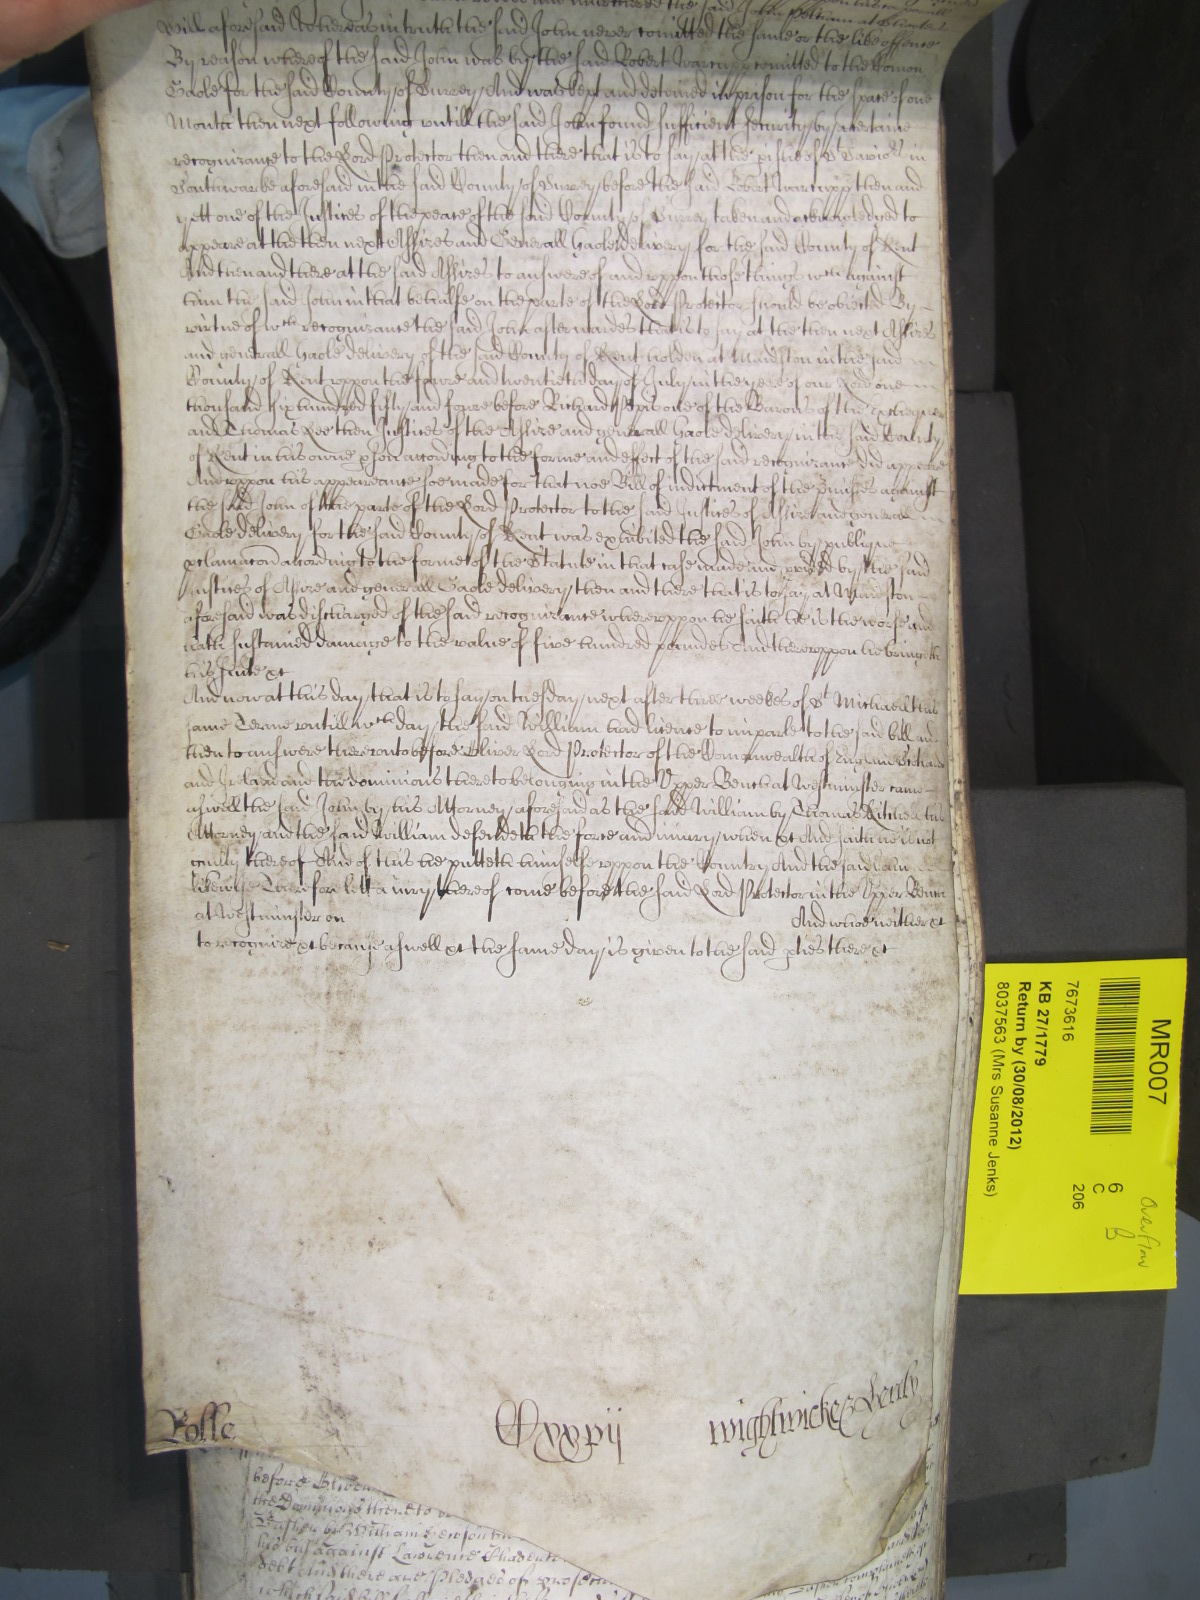 Will aforesaid Whereas in truth the said John never comitted the same or the like offence
By reason whereof the said John was by the said Robert Warcupp comitted to the Comon
Gaole for the said County of Surrey And was kept and deteined in prison for the space of one
Moneth then next following untill the said John found sufficient security by a certaine
recognizance to the Lord Protector then and there that is to say at the pish of St in
Southwarke aforesaid in the said County of Surrey before the said Robert Warcupp then and
yett one of the Justices of the peace of the said County of Surrey taken and acknowledged to
appeare at the then next Assizes and Generall Gaole delivery for the said County of Kent
And then and there at the said Assizes to answere of and uppon those things wch against
him the said John in that behalfe on the parte of the Lord Protector should be obiected By
virtue of wch recognizance the said John afterwardes that is to say at the then next Assizes
and generall Gaole delivery of the said County of Kent holden at Maidston in the said
County of Kent uppon the fowre and twentieth day of July in the yere of our Lord one
thousand six hundred fifty and fowre before Richard one of the Barons of the Exchequer
and Thomas then Justices of the Assize and generall Gaole delivery in the said County
of Kent in his owne pson according to the forme and effect of the said recognizance did appeare
And uppon his appearance soe made for that noe Bill of indictment of the pmisses against
the said John of the parte of the Lord Protector to the said Justices of Assize and generall
Gaole delivery for the said County of Kent was exhibited the said John by publique
pclamacon according to the forme of the Statute in that case made and pvided by the said
Justices of Assize and generall Gaole delivery then and there that is to say at Maidston
aforesaid was discharged of the said recognizance whereuppon he saith he is the worse and
hath susteined damage to the value of five hundred poundes And thereuppon he bringeth
his suite &c
And now at this day that is to say on tuesday next after three weekes of St Michaell this
same Terme untill wch day the said William had licence to imparle to the said bill and
then to answere thereunto before Oliver Lord Protector of the Comonwealth of England Scotland
and Ireland and the dominions thereto belonging in the Upper Bench at Westminster came
aswell the said John by his Attorney aforesaid as the said William by Thomas his
Attorney and the said William defendeth the force and iniury when &c And saith he is not
guilty thereof And of this he putteth himselfe uppon the Country And the said John
likewise Therefore lett a iury thereof come before the said Lord Protector in the Upper Bench
at Westminster on And whoe neither &c
to recognize &c because aswell &c the same day is given to the said pties there &c
Rolle
Mxxvij
Wightwicke
MR007
7673616
KB 27/1779
Return by (30/08/2012)
8037563 (Mrs Susanne Jenks)
6
C
206
Overflow
B
before Oliver
the Dominions thereto
his bill against Lawrence
debt And there are Pledges of